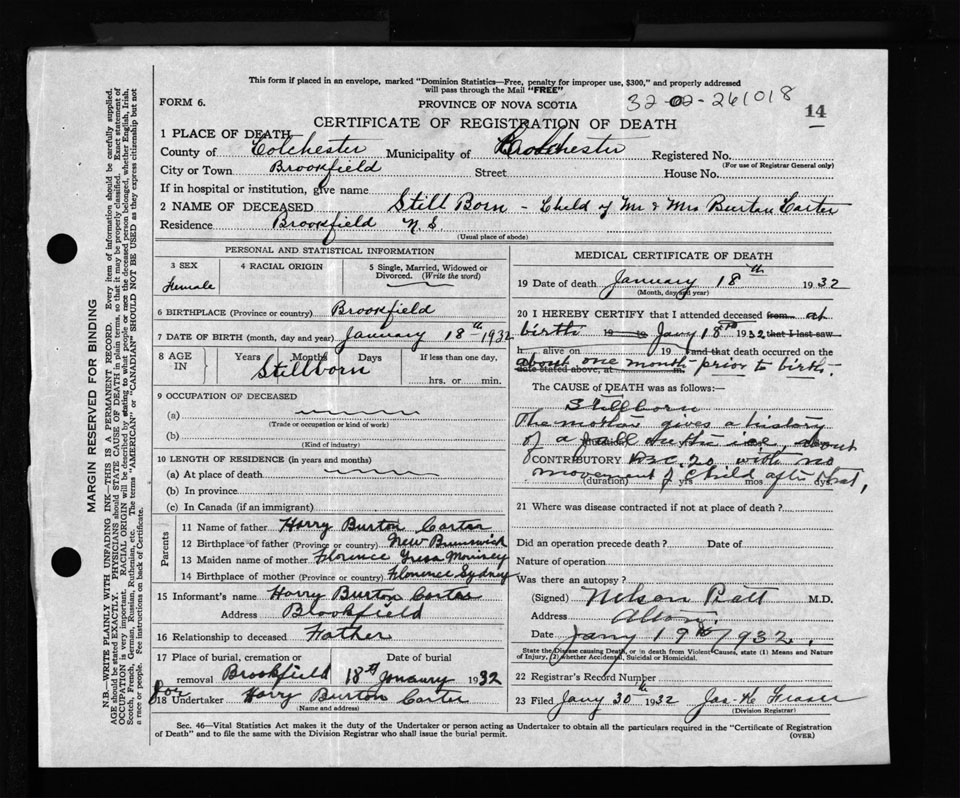 This form if placed in an envelope, marked "Dominion Statistics—Free, penalty for improper use, $300," and properly addressed
will pass through the Mail "FREE"
32-02-261018
14
FORM 6.
PROVINCE OF NOVA SCOTIA
CERTIFICATE OF REGISTRATION OF DEATH
1 PLACE OF DEATH
County of Colchester Municipality of Colchester Registered No.
(For use of Registrar General only)
City or Town Brookfield Street House No.
If in hospital or institution, give name
2 NAME OF DECEASED Still Born - Child of Mr & Mrs Burton Carter
Residence Brookfield N.S.
(Usual place of abode)
PERSONAL AND STATISTICAL INFORMATION
3 SEX
Female
4 RACIAL ORIGIN
5 Single, Married, Widowed or
Divorced. (Write the word)
6 BIRTHPLACE (Province or country) Brookfield
7 DATE OF BIRTH (month, day and year) January 18th 1932
8 AGE
IN
Years Months Days
Stillborn
If less than one day,
hrs. or min.
9 OCCUPATION OF DECEASED
(a)
(Trade or occupation or kind of work)
(b)
(Kind of industry)
10 LENGTH OF RESIDENCE (in years and months)
(a) At place of death
(b) In province
(c) In Canada (if an immigrant)
Parents
11 Name of father Harry Burton Carter
12 Birthplace of father (Province or country) New Brunswick
13 Maiden name of mother Florence
14 Birthplace of mother (Province or country) Florence Sydney
15 Informant's name Harry Burton Carter
Address Brookfield
16 Relationship to deceased Father
17 Place of burial, cremation or Date of burial
removal Brookfield 18th January 1932
for
18 Undertaker Harry Burton Carter
(Name and address)
MEDICAL CERTIFICATE OF DEATH
19 Date of death January 18th 1932
(Month, day and year)
20 I HEREBY CERTIFY that I attended deceased from at
birth 19 to Jany 18th 1932 that I last saw
h alive on 19 and that death occurred on the
date stated above, at m.
about one month prior to birth.
The CAUSE of DEATH was as follows:—
Stillborn
The mother gives a history
of a fall on the ice, about
CONTRIBUTORY Dec. 20 with no
movement of child after that,
(duration) yrs mos dys.
21 Where was disease contracted if not at place of death?
Did an operation precede death? Date of
Nature of operation
Was there an autopsy?
(Signed) Nelson Pratt M.D.
Address Alton
Date Jany 19th 1932.
State the Disease causing Death, or in death from Violent Causes, state (1) Means and Nature
of Injury, (2) whether Accidental, Suicidal or Homicidal.
22 Registrar's Record Number
23 Filed Jany 30th 1932 Jas. K. Fraser
(Division Registrar)
Sec. 46—Vital Statistics Act makes it the duty of the Undertaker or person acting as Undertaker to obtain all the particulars required in the "Certificate of Registration
of Death" and to file the same with the Division Registrar who shall issue the burial permit.
(OVER)
MARGIN RESERVED FOR BINDING
N.B.—WRITE PLAINLY WITH UNFADING INK—THIS IS A PERMANENT RECORD. Every item of information should be carefully supplied.
AGE should be stated EXACTLY. PHYSICIANS should STATE CAUSE OF DEATH in plain terms, so that it may be properly classified. Exact statement of
OCCUPATION is very important. RACIAL ORIGIN will be described by stating to what people or race the deceased person belonged, whether English, Irish,
Scotch, French, German, Russian, Ruthenian, etc. The terms "AMERICAN" or "CANADIAN" SHOULD NOT BE USED as they express citizenship but not
a race or people. See instructions on back of Certificate.